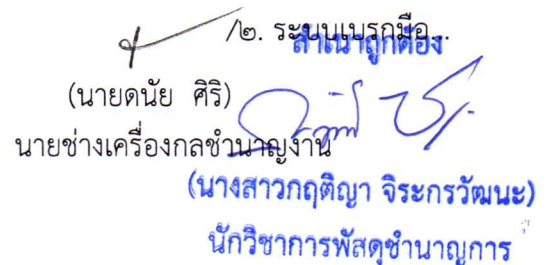 /๒. ระบบเบรกมือ...
สำเนาถูกต้อง
(นายดนัย ศิริ)
นายช่างเครื่องกลชำนาญงาน
(นางสาวกฤติญา จิระกรวัฒนะ)
นักวิชาการพัสดุชำนาญการ